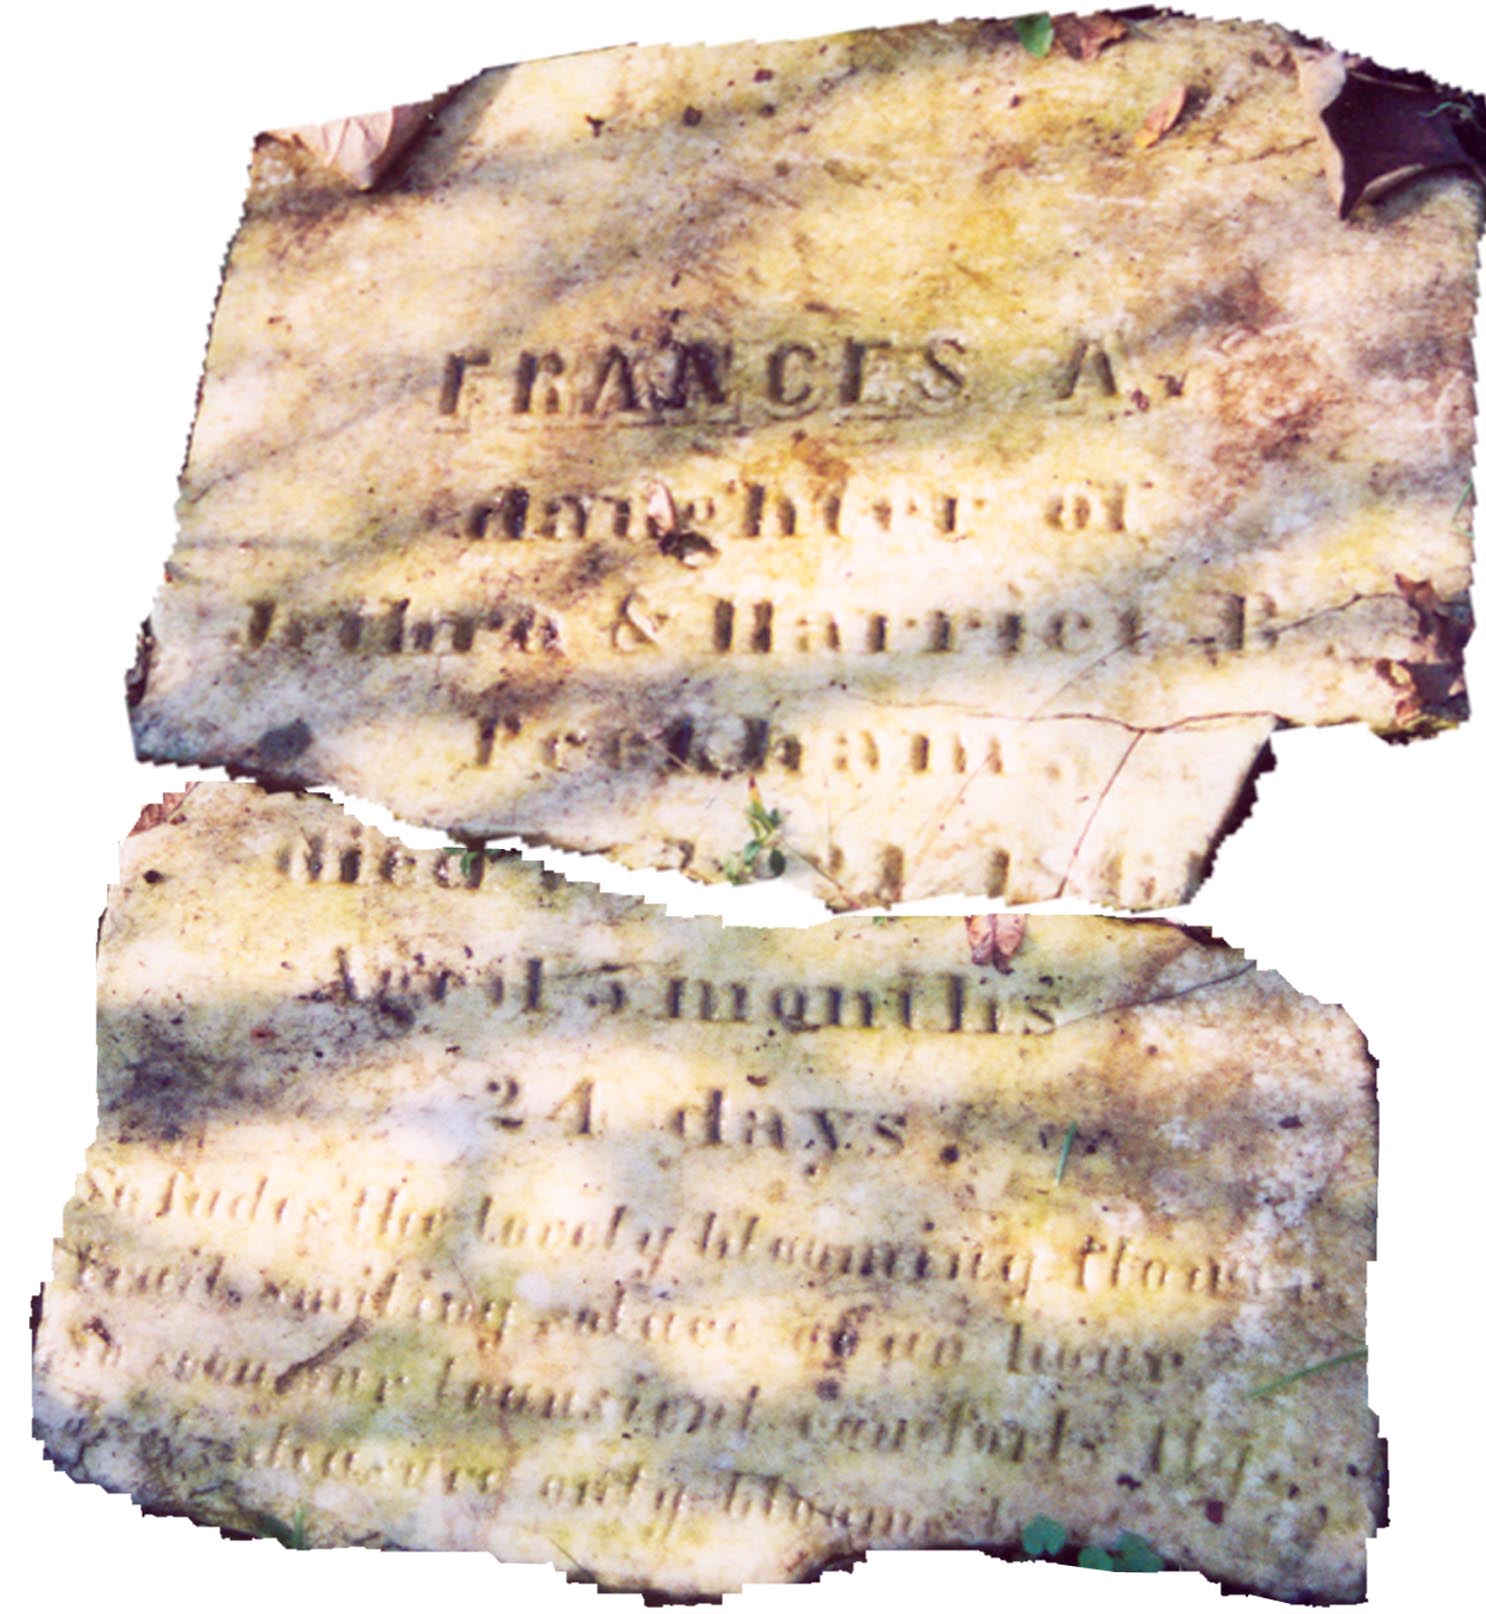 FRANCES A.
daughter of
Jethra & Harriet P
died
Aged 5 months
24 days
So fades the lovely blooming flow
smiling solace of an hour
So soon our transient comforts fly
pleasure only blooms